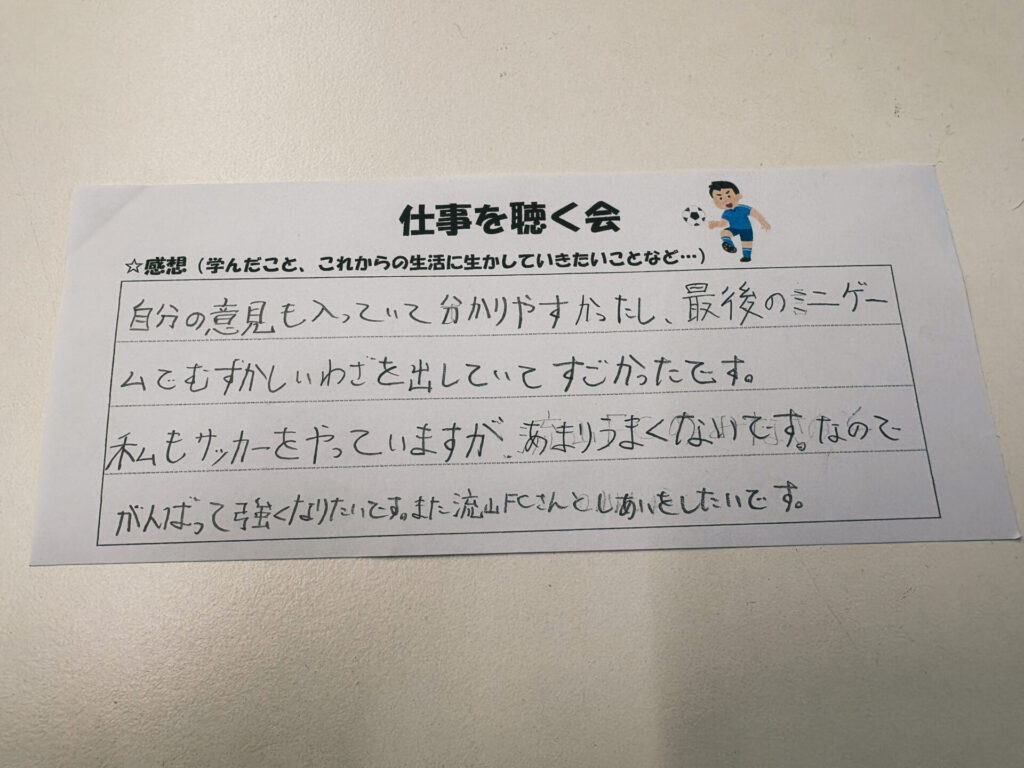 仕事を聴く会
☆感想（学んだこと、これからの生活に生かしていきたいことなど…）
自分の意見も入っていて分かりやすかったし、最後のミニゲー
ムでむずかしいわざを出していてすごかったです。
私もサッカーをやっていますが、あまりうまくないです。なので
がんばって強くなりたいです。また流山FCさんとしあいをしたいです。